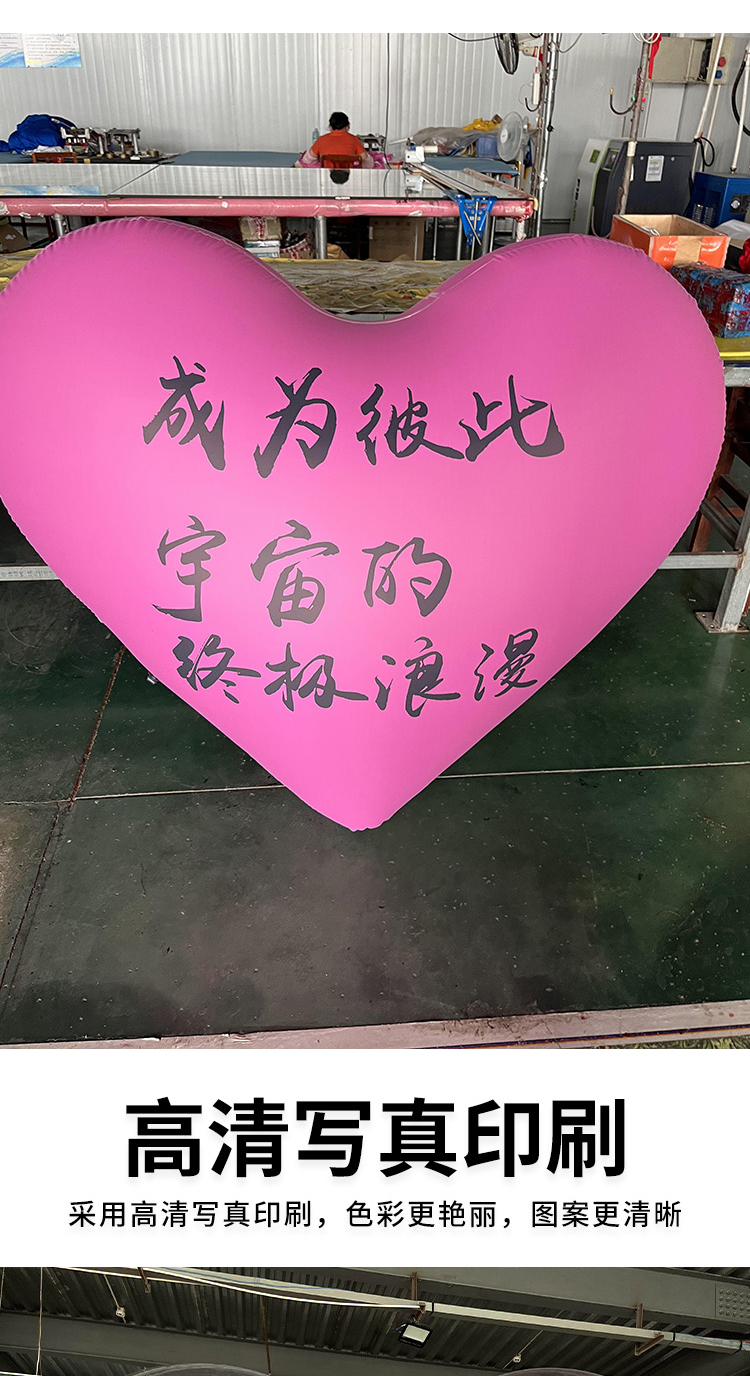 成为彼此
宇宙的
终极浪漫
高清写真印刷
采用高清写真印刷，色彩更艳丽，图案更清晰